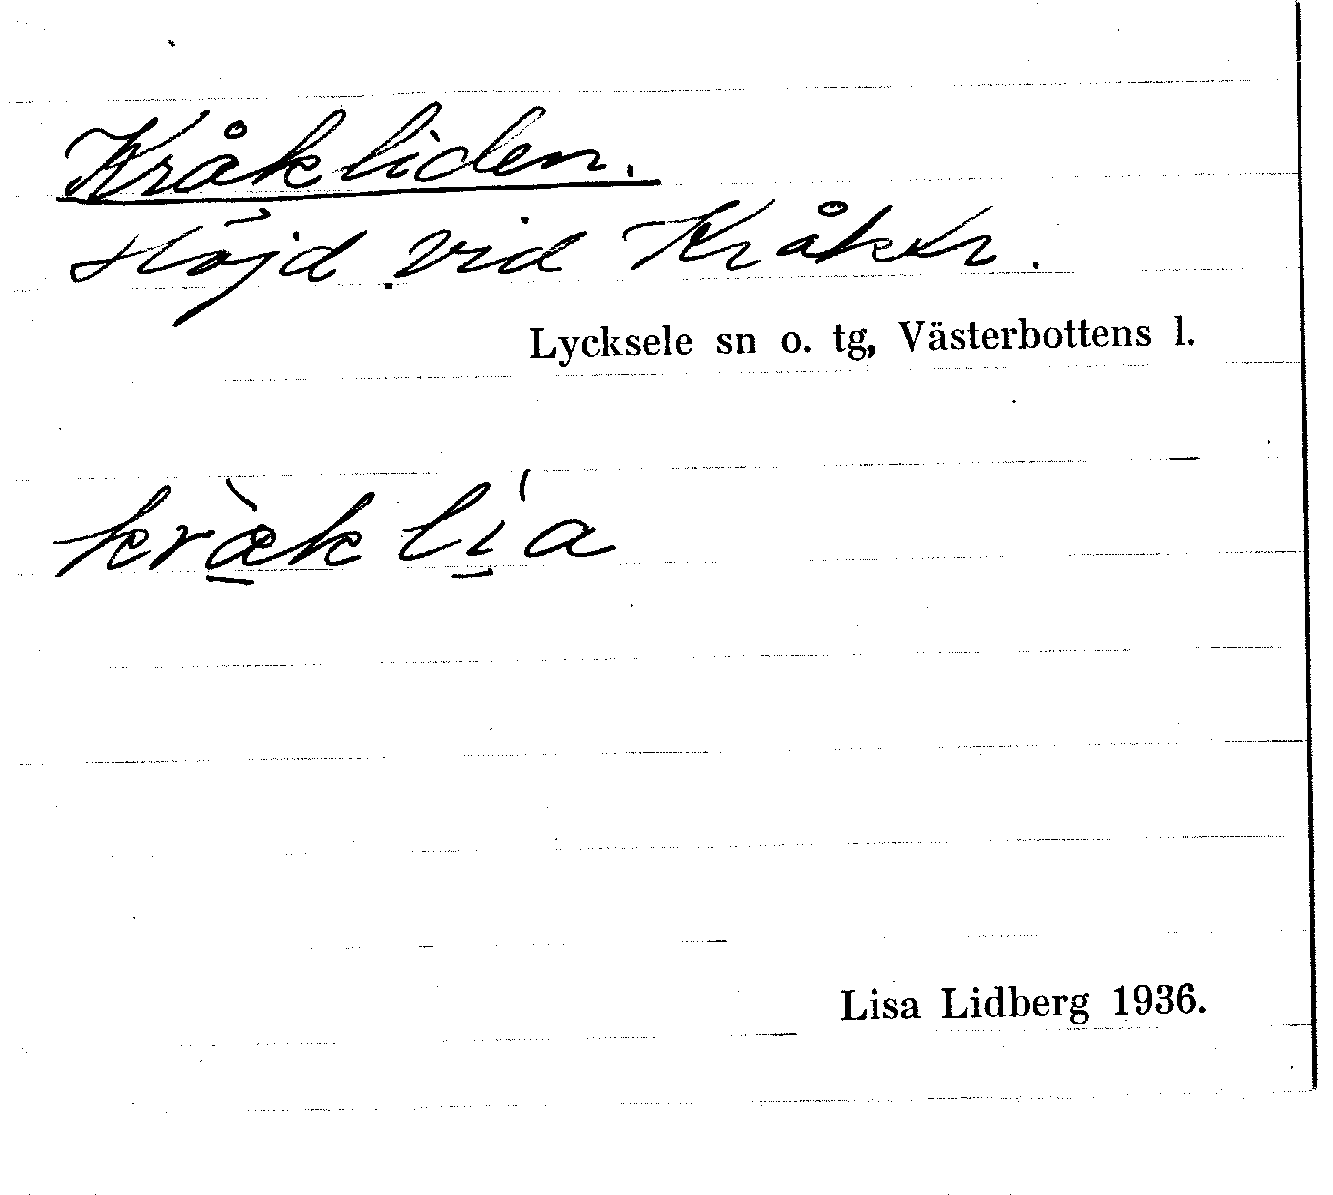 Kråkliden.
Höjd vid Kråkån.
Lycksele sn o. tg, Västerbottens l.
kræ̱̀k lí̱a
Lisa Lidberg 1936.